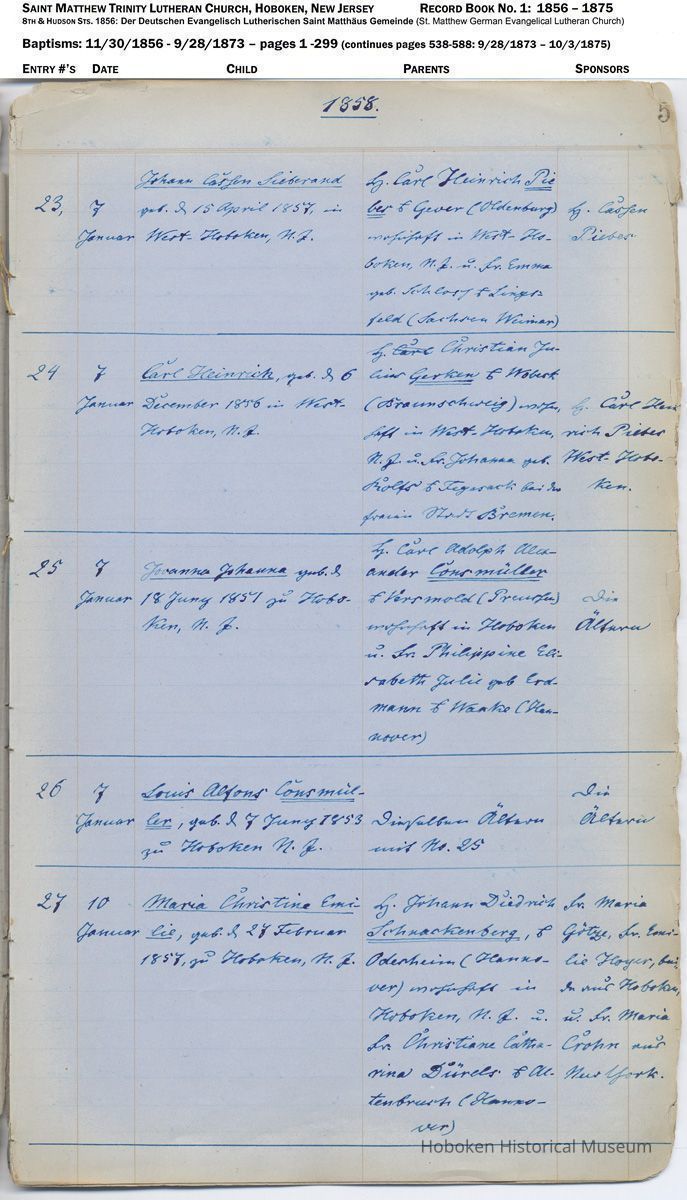 SAINT MATTHEW TRINITY LUTHERAN CHURCH, HOBOKEN, NEW JERSEY RECORD BOOK NO. 1: 1856 – 1875
8TH & HUDSON STS. 1856: Der Deutschen Evangelisch Lutherischen Saint Matthäus Gemeinde (St. Matthew German Evangelical Lutheran Church)
Baptisms: 11/30/1856 - 9/28/1873 – pages 1 -299 (continues pages 538-588: 9/28/1873 – 10/3/1875)
ENTRY #'S DATE CHILD PARENTS SPONSORS
1858.
5
23,
7
Januar
Johann Cassen Sieberand
geb. d 15 April 1857, in
West-Hoboken, N. J.
H. Carl Heinrich Pie
bes (Oldenburg)
wohnhaft in West-Ho-
boken, N. J. u. Fr. Emma
geb.
feld (Sachsen Weimar)
H. Cassen
Piebes
24
7
Januar
Carl Heinrich, geb. d 6
December 1856 in West-
Hoboken, N. J.
H. Carl Christian Ju-
lius Gerken
(Braunschweig) wohn-
haft in West-Hoboken,
N. J. u. Fr. Johanna geb.
Rolfs bei der
freien Stadt Bremen.
H. Carl Hein
rich Piebes
West-Hobo-
ken.
25
7
Januar
Johanna geb. d
18 Juny 1851 zu Hobo-
ken, N. J.
H. Carl Adolph Alex-
ander Consmüller
Versmold (Preußen)
wohnhaft in Hoboken
u. Fr. Philippine Eli-
sabeth Julie geb Erd-
mann Waake (Han-
nover)
Die
Ältern
26
7
Januar
Louis Alfons Consmül-
ler, geb. d 7 Juny 1853
zu Hoboken N. J.
Dieselben Ältern
mit No. 25
Die
Ältern
27
10
Januar
Maria Christine Emi
lie, geb. d 27 Februar
1857, zu Hoboken, N. J.
H. Johann Diedrich
Schnackenberg,
Odesheim (Hanno-
ver) wohnhaft in
Hoboken, N. J. u.
Fr. Christiane Catha-
rina Dürels Al-
tenbruch (Hanno-
ver)
Fr. Maria
Götze, Fr. Emi-
lie Hoyer, bei-
de aus Hoboken,
u. Fr. Maria
Crohn aus
New York.
Hoboken Historical Museum